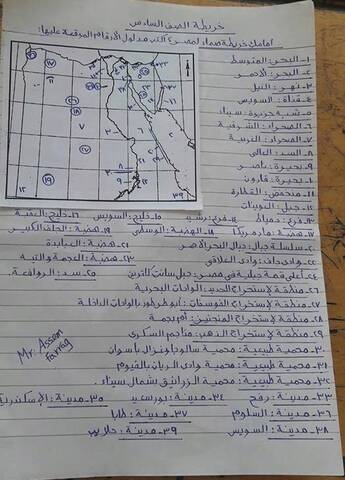 خريطة الصف السادس
أمامك خريطة صماء لمصر، اكتب مدلول الأرقام الموقعة عليها:
١- البحر: المتوسط
٢- البحر: الأحمر
٣- نهر: النيل
٤- قناة: السويس
٥- شبه جزيرة: سيناء
٦- الصحراء: الشرقية
٧- الصحراء: الغربية
٨- السد: العالى
٩- بحيرة: ناصر
١٠- بحيرة: قارون
١١- منخفض: القطارة
١٢- جبل: العوينات
١٣- فرع: دمياط ١٤- فرع: رشيد ١٥- خليج: السويس ١٦- خليج: العقبة
١٧- هضبة: مارمريكا ١٨- الهضبة: الوسطى ١٩- هضبة: الجلف الكبير
٢٠- سلسلة جبال: جبال البحر الأحمر ٢١- هضبة: العبابدة
٢٢- وادى جاف: وادى العلاقى ٢٣- هضبة: العجمة والتيه
٢٤- أعلى قمة جبلية فى مصر: جبل سانت كاترين ٢٥- سد: الروافعة
٢٦- منطقة لاستخراج الحديد: الواحات البحرية
٢٧- منطقة لاستخراج الفوسفات: أبو طرطور بالواحات الداخلة
٢٨- منطقة لاستخراج المنجنيز: أم بجمة
٢٩- منطقة لاستخراج الذهب: مناجم السكرى
٣٠- محمية طبيعية: محمية سالوجا وغزال بأسوان
٣١- محمية طبيعية: محمية وادى الريان بالفيوم
٣٢- محمية طبيعية: محمية الزرانيق بشمال سيناء
٣٣- مدينة: رفح ٣٤- مدينة: بورسعيد ٣٥- مدينة: الإسكندرية
٣٦- مدينة: السلوم ٣٧- مدينة: طابا
٣٨- مدينة: السويس ٣٩- مدينة: حلايب
Mr. Assem
farrag